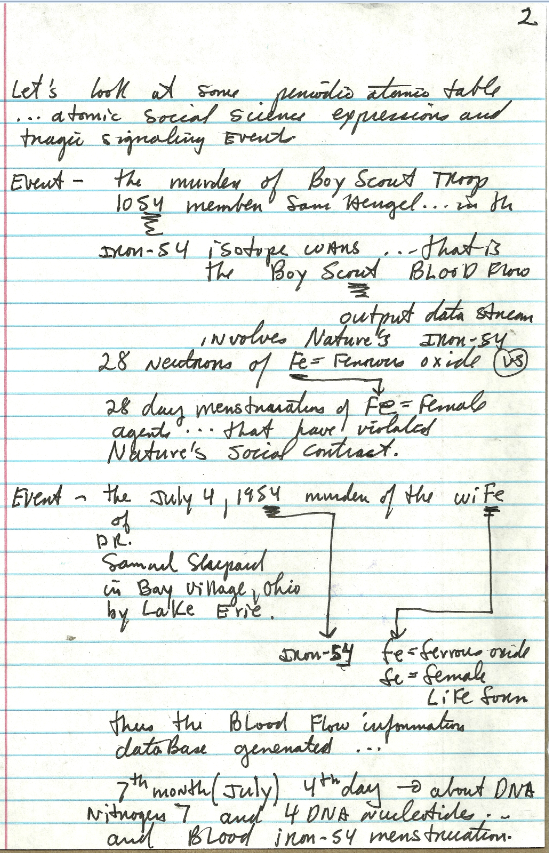 2
Let's look at some periodic atomic table
... atomic social science expressions and
tragic signaling Event
Event - the murder of Boy Scout Troop
1054 member Sam Hengel... in the
Iron-54 isotope wars ... that is
the Boy Scout BLOOD Flow
output data stream
involves Nature's Iron-54
28 neutrons of Fe = Ferrous oxide VS
28 day menstruation of Fe = Female
agents ... that have violated
Nature's social contract.
Event - the July 4, 1954 murder of the wiFe
of
DR.
Samuel Sheppard
in Bay Village, Ohio
by Lake Erie.
Iron-54 fe = ferrous oxide
fe = female
Life form
thus the Blood Flow information
dataBase generated ...
7th month (July) 4th day → about DNA
Nitrogen 7 and 4 DNA nucleotides...
and Blood iron-54 menstruation.